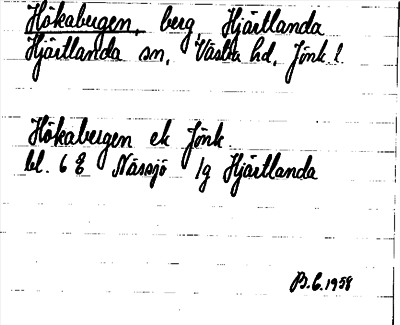 Hökabergen, berg, Hjärtlanda
Hjärtlanda sn, Västra hd, Jönk. l.
Hökabergen ek Jönk
bl. 6 E Nässjö 1g Hjärtlanda
B.C. 1958